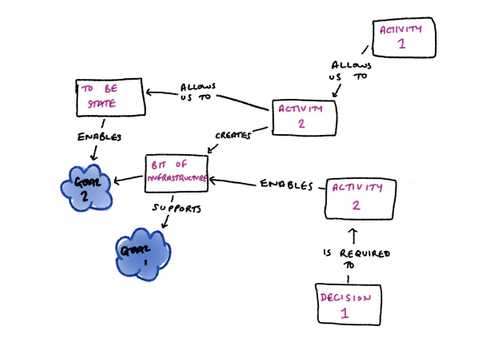 ACTIVITY
1
ALLOWS
US TO
TO BE
STATE
ALLOWS
US TO
ACTIVITY
2
ENABLES
CREATES
GOAL
2
BIT OF
INFRASTRUCTURE
ENABLES
ACTIVITY
2
SUPPORTS
GOAL
1
IS REQUIRED
TO
DECISION
1